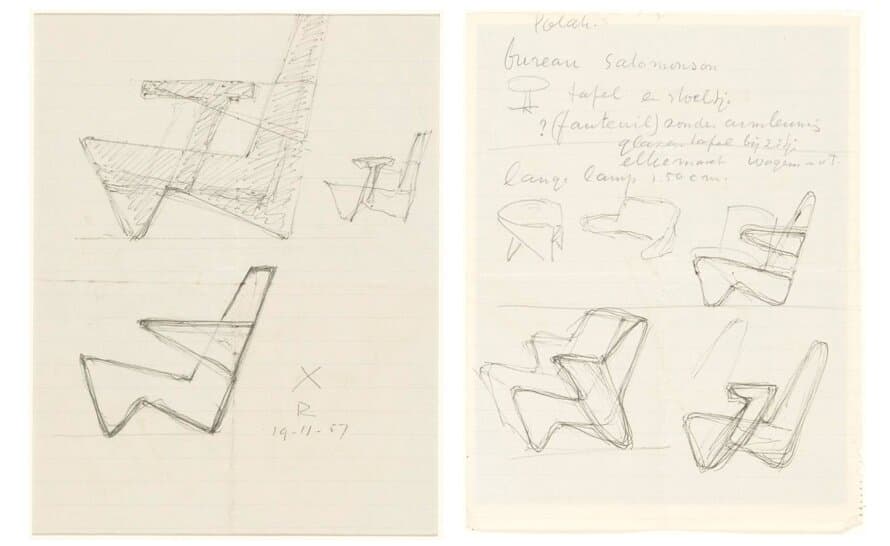 X
R
19-11-57
Polak.
bureau Salomonson
tafel en stoeltje
? (fauteuil) zonder armlennis
glazen tafel bij zitje
elkemaet wagen
lange lamp 1.50 cm.